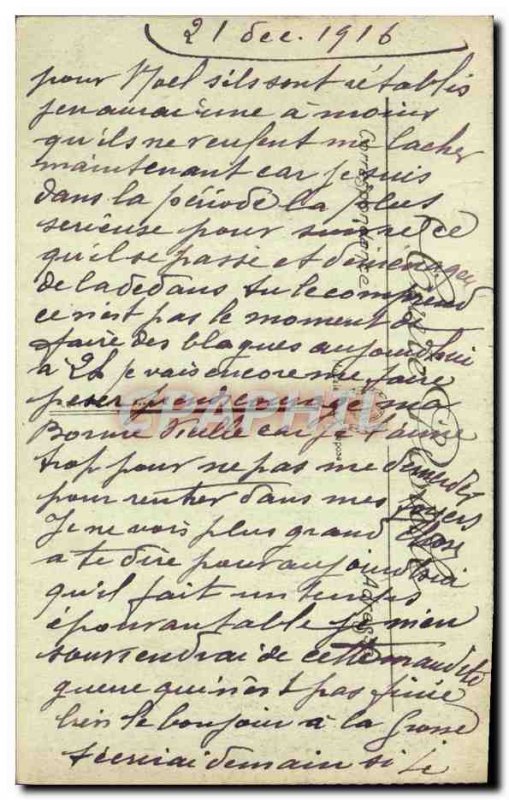 21 dec. 1916
pour Noel s'ils sont rétablis
j'en aurai une à moins
qu'ils ne veulent me lacher
maintenant car je suis
dans la période la plus
serieuse pour ce
qu'il se passe et
de la dedans tu le comprend
ce n'est pas le moment de
faire des blagues aujourdhui
à 2h je vais encore me faire
peser ma
Bonne Vielle car je t'aime
trop pour ne pas me
pour rentrer dans mes foyers
Je ne vois plus grand chose
a te dire pour aujourdhui
qu'il fait un temps
épouvantable je m'en
souviendrai de cette maudite
guerre qui n'est pas finie
bien le bonjour à la Grosse
t'ecrirai demain si le
Correspondance
Adresse
CPAPHIL